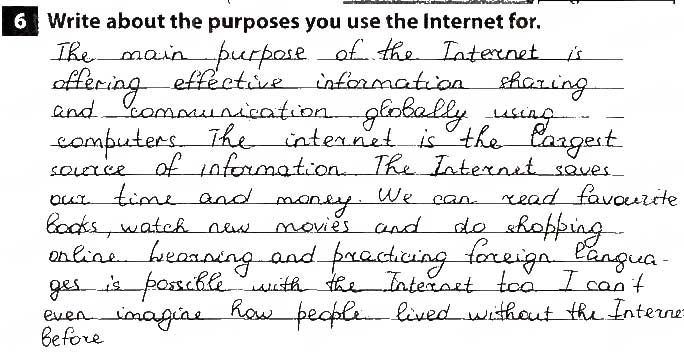 6 Write about the purposes you use the Internet for.
The main purpose of the Internet is
offering effective information sharing
and communication globally using
computers. The internet is the largest
source of information. The Internet saves
our time and money. We can read favourite
books, watch new movies and do shopping
online. Learning and practicing foreign langua-
ges is possible with the Internet too I can't
even imagine how people lived without the Interne
before